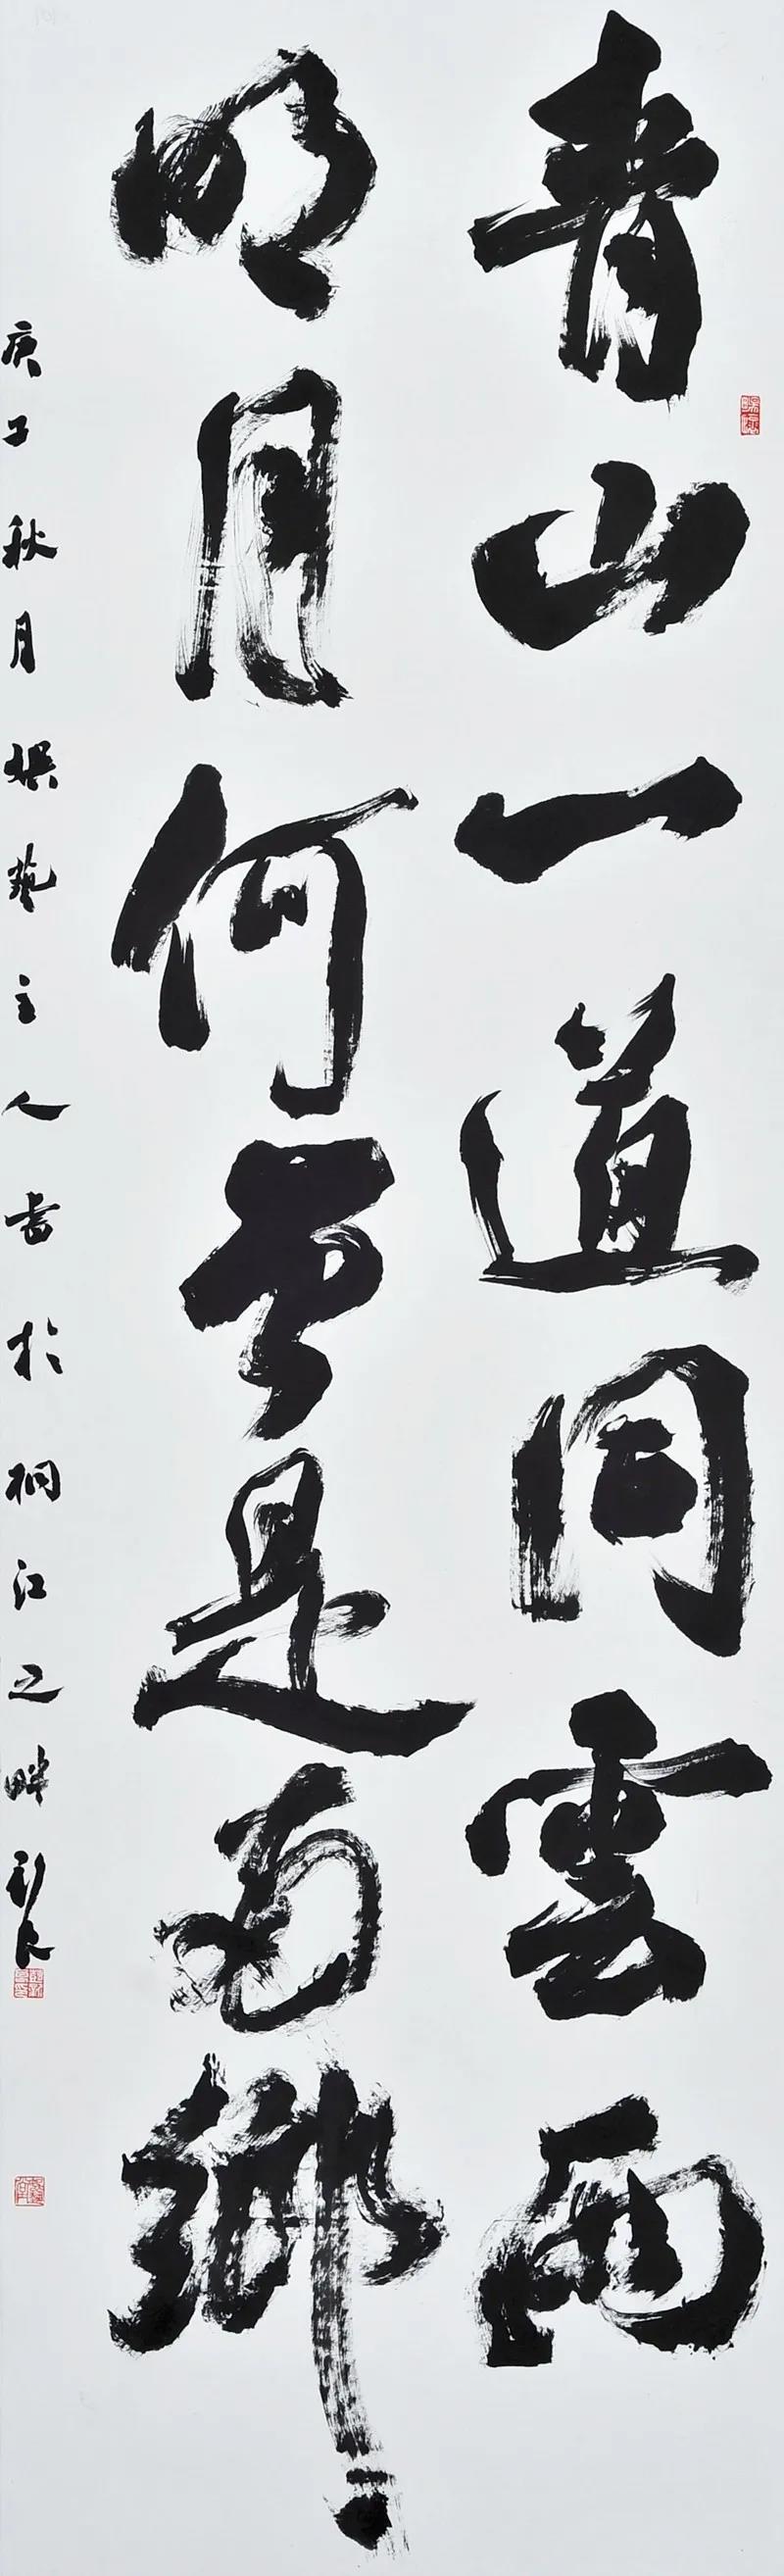 青山一道同雲雨
明月何曾是兩鄉
庚子秋月娛藝主人書於桐江之畔